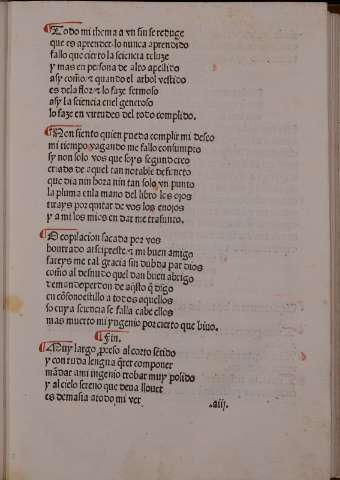 Todo mi thema a vn fin se reduze
que es aprender lo nunca aprendido
fallo que cierto la sciencia reluze
y mas en persona de alto apellido
asy como quando el arbol vestido
es dela flor lo faze fermoso
asy la sciencia enel generoso
lo faze en virtudes del todo complido.
Non siento quien pueda complir mi deseo
mi tiempo vagando me fallo consumpto
sy non solo vos que soys segund creo
criado de aquel tan notable defuncto
que dia nin hora nin tan solo vn punto
la pluma enla mano del libro los ojos
tirays por quitar de vos los enojos
y a mi los mios en dar me trasunto.
Copilacion sacada por vos
honrado arcipreste mi buen amigo
fareys me tal gracia sin dubda par dios
como al desnudo quel dan buen abrigo
demando perdon de aqsto q digo
en cosono estillo a todos aquellos
so cuya sciencia se falla cabe ellos
mas muerto mi yngenio por cierto que biuo.
Fin.
Muy largo proceso al corto setido
y con ruda lengua qrer componer
madar ami ingenio trobar muy polido
y al cielo sereno que deua llouer
es demasia atodo mi ver
.aiij.